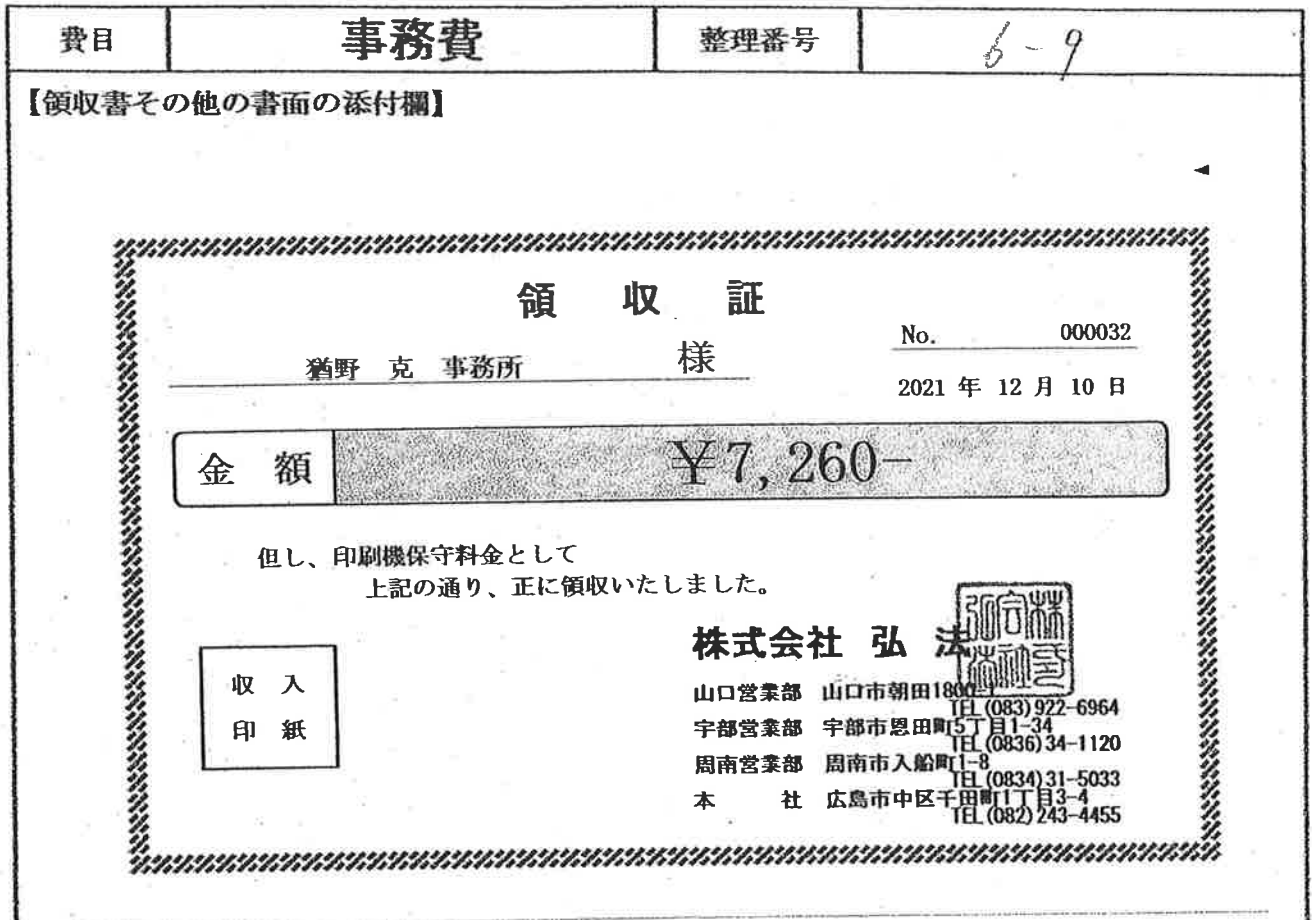 費目 事務費 整理番号 6-9
【領収書その他の書面の添付欄】
領 収 証
No. 000032
猶野 克 事務所 様
2021 年 12 月 10 日
金 額 ¥7,260-
但し、印刷機保守料金として
上記の通り、正に領収いたしました。
株式会社 弘 法
山口営業部 山口市朝田1800-1
TEL(083)922-6964
宇部営業部 宇部市恩田町5丁目1-34
TEL(0836)34-1120
周南営業部 周南市入船町1-8
TEL(0834)31-5033
本 社 広島市中区千田町1丁目3-4
TEL(082)243-4455
収 入
印 紙